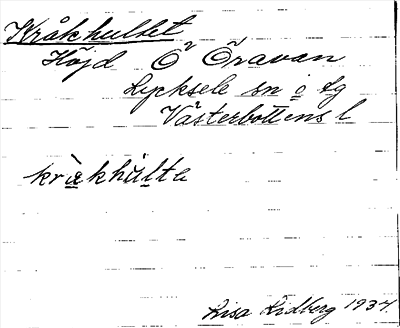 Kråkhultet
Höjd Ö Öravan
Lycksele sn o lg
Västerbottens l
kråkhulta
Lisa Lidberg 1934.